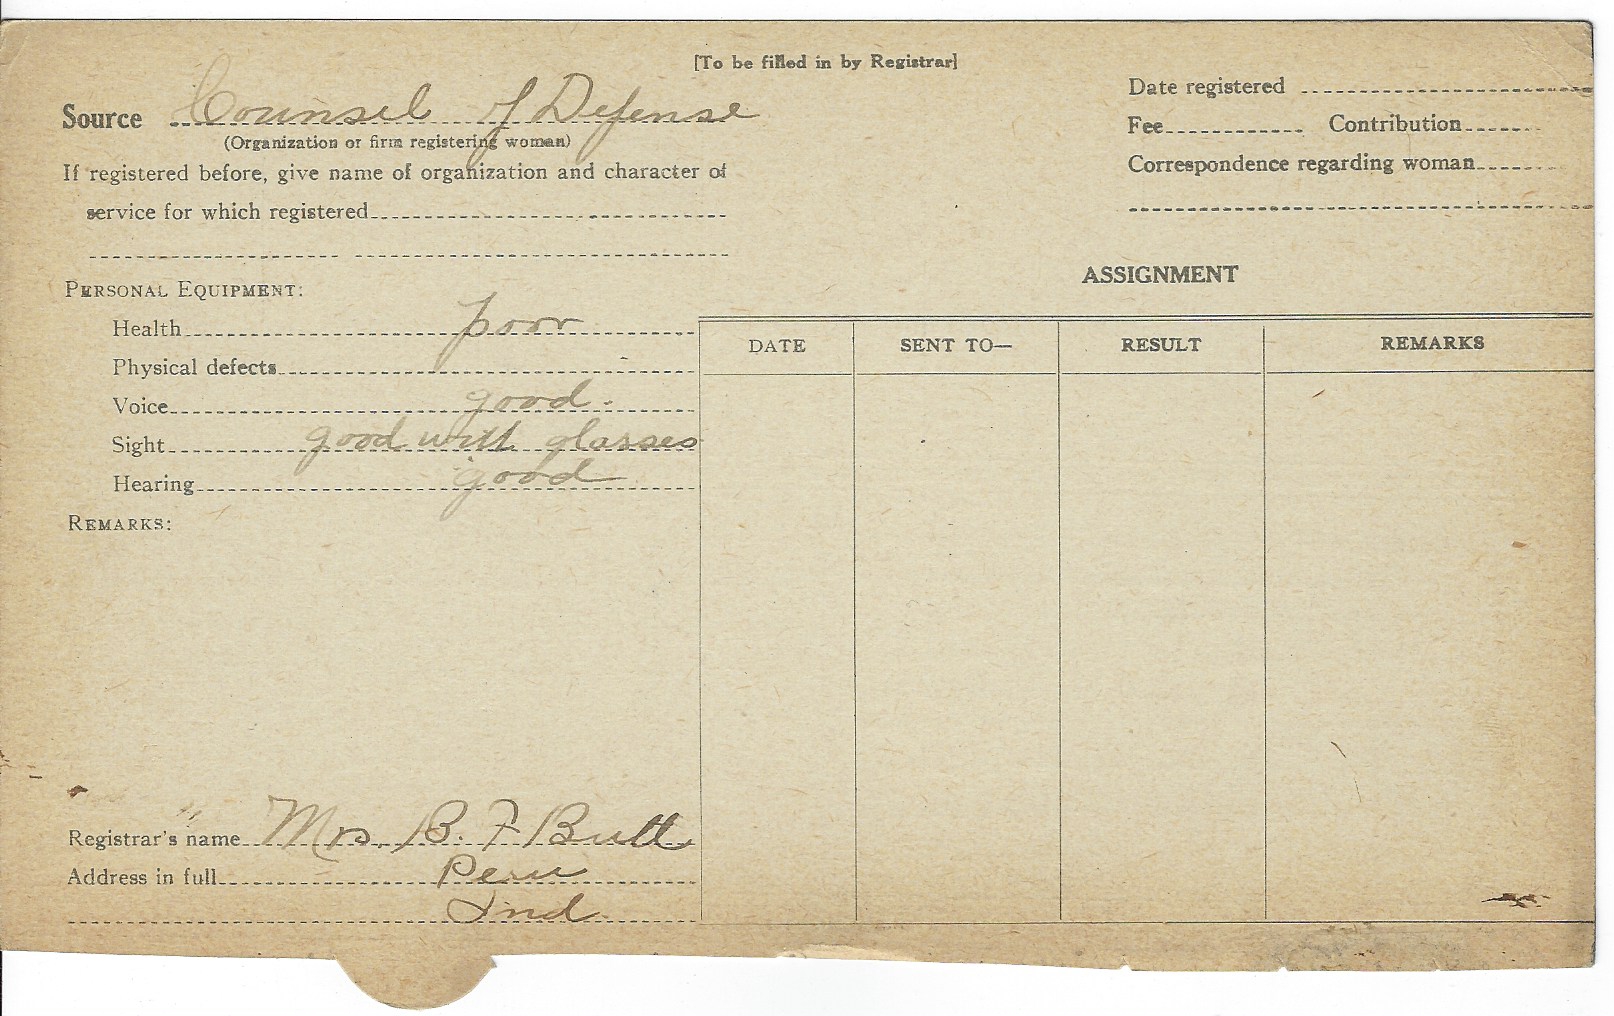 [To be filled in by Registrar]
Source Counsel of Defense
(Organization or firm registering woman)
If registered before, give name of organization and character of
service for which registered
PERSONAL EQUIPMENT:
Health poor
Physical defects -
Voice good.
Sight good with glasses
Hearing good
REMARKS:
Registrar's name Mrs. B. F. Butt
Address in full Peru
Ind.
Date registered
Fee Contribution
Correspondence regarding woman
ASSIGNMENT
DATE SENT TO— RESULT REMARKS